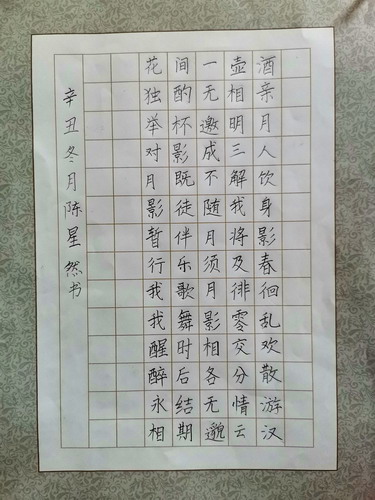 花间一壶酒
独酌无相亲
举杯邀明月
对影成三人
月既不解饮
影徒随我身
暂伴月将影
行乐须及春
我歌月徘徊
我舞影零乱
醒时相交欢
醉后各分散
永结无情游
相期邈云汉
辛丑冬月陈星然书